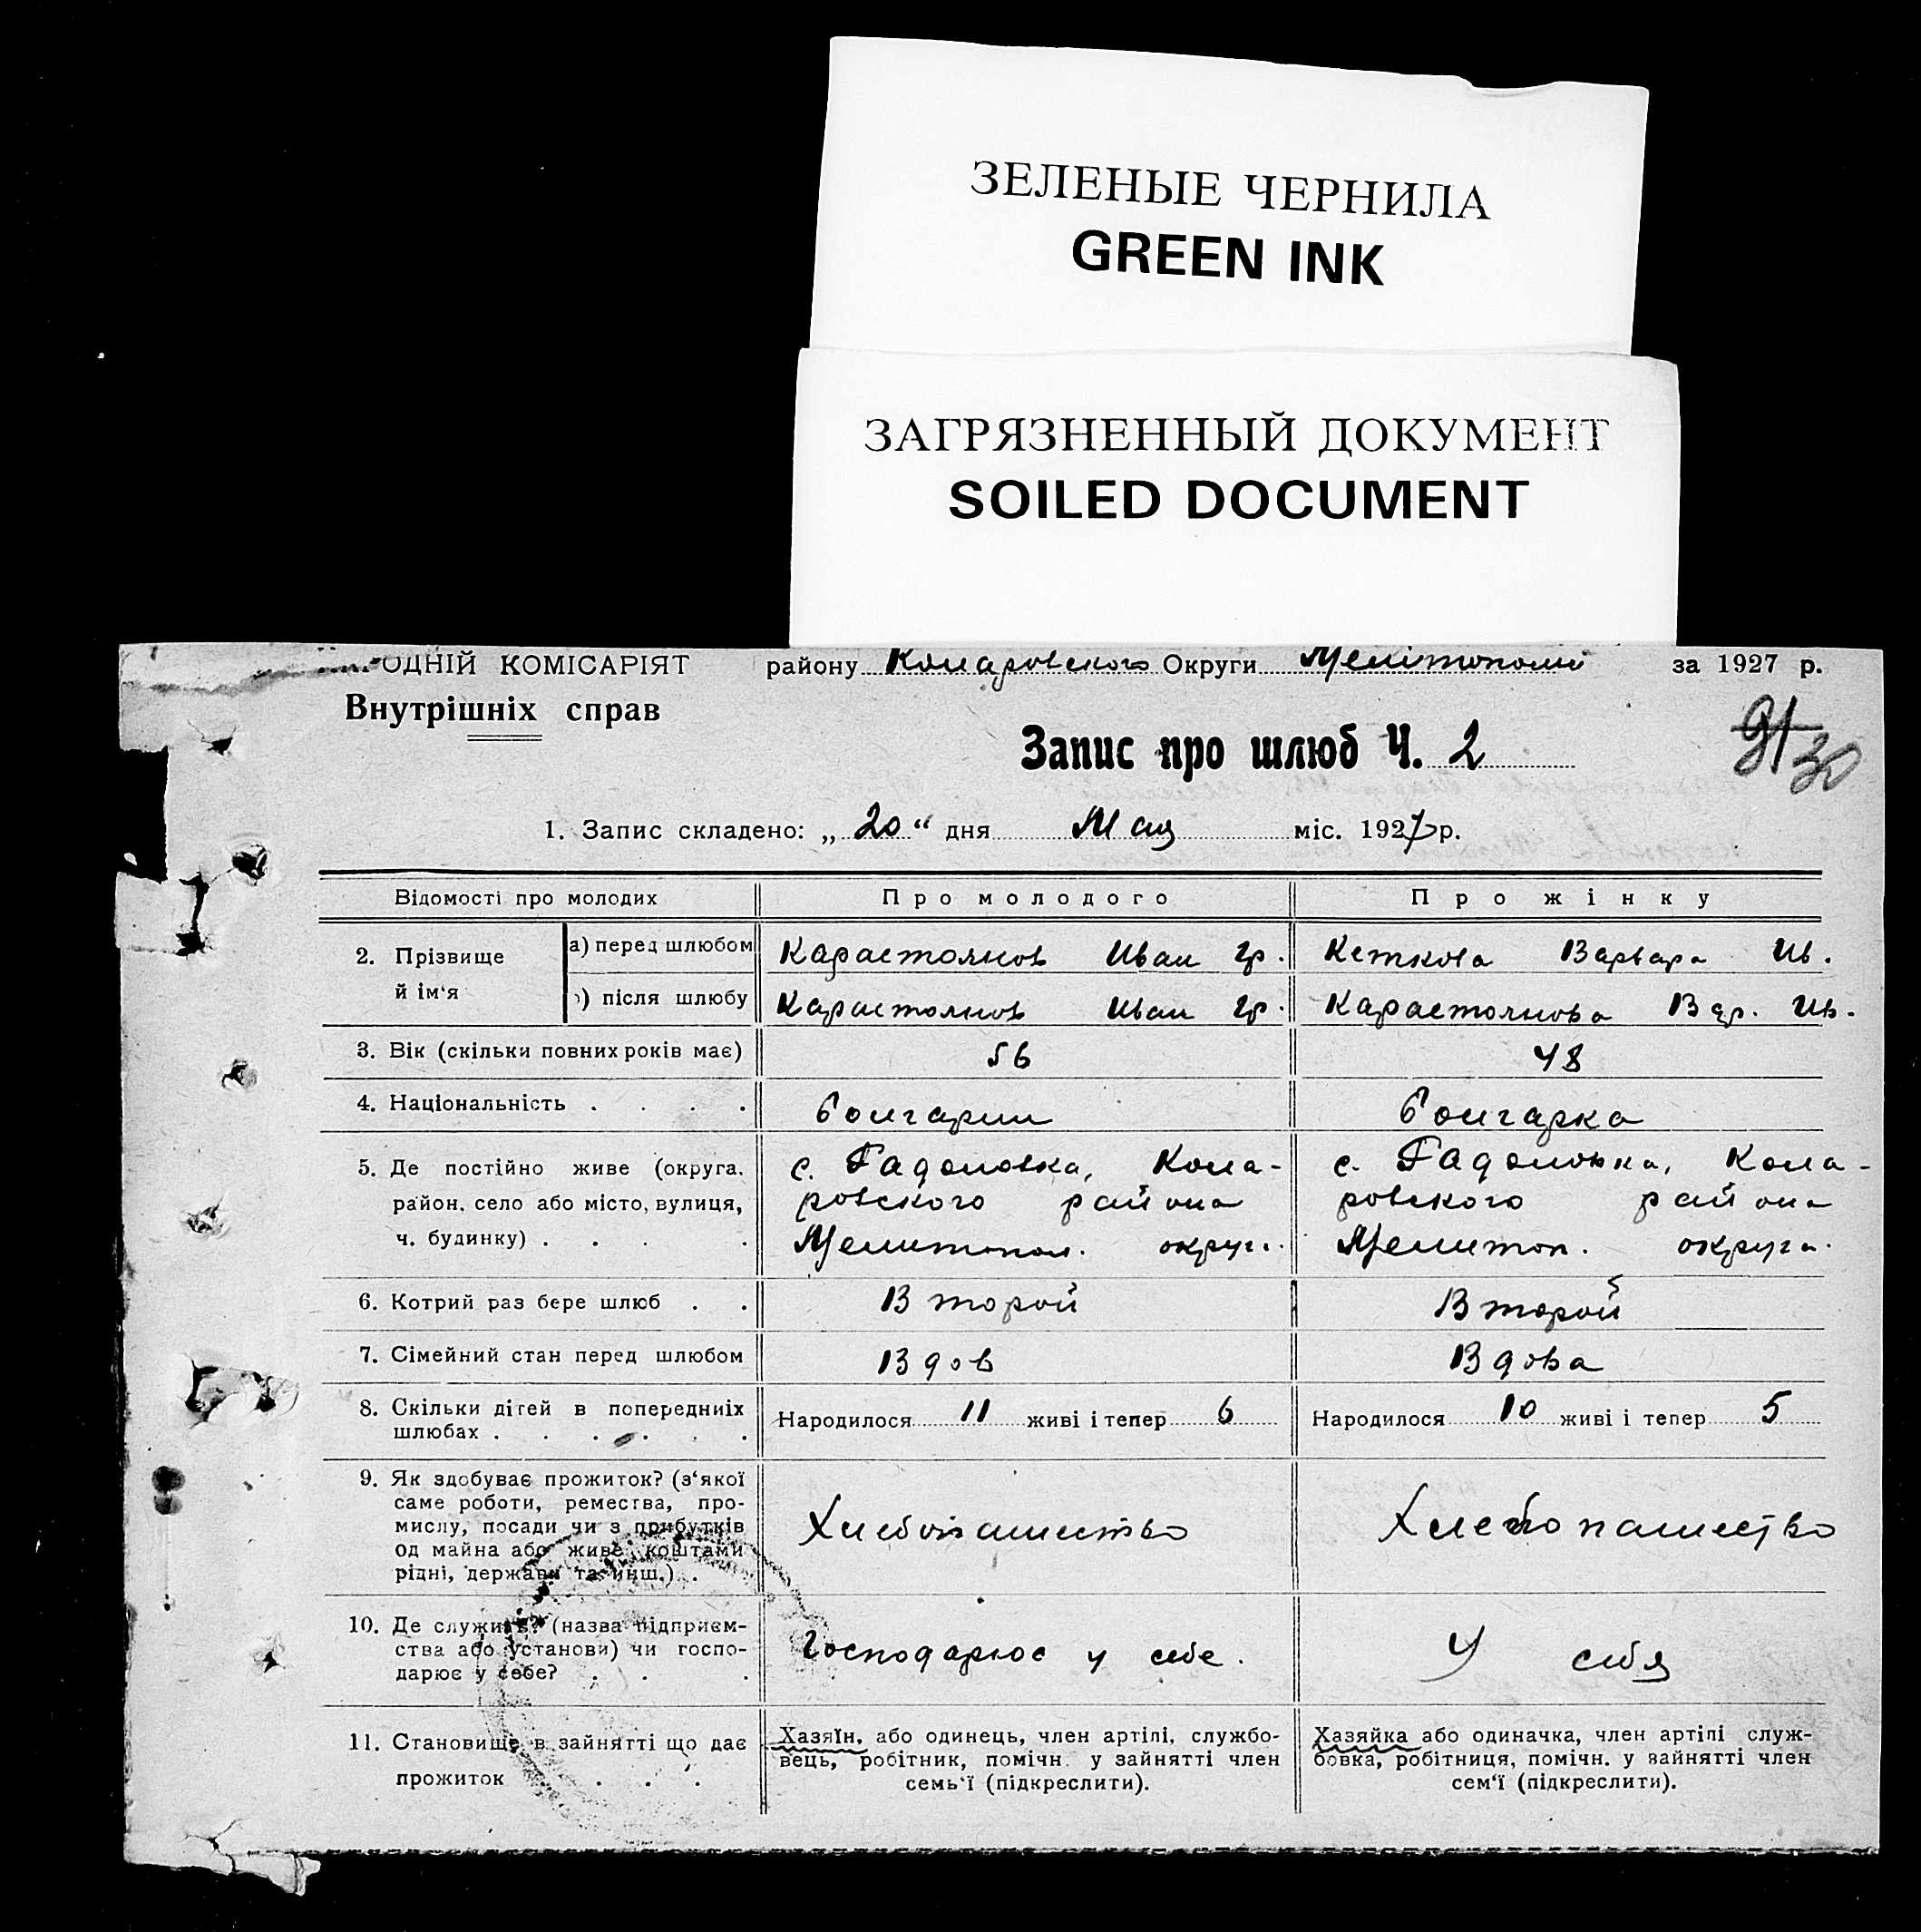 ЗЕЛЕНЫЕ ЧЕРНИЛА
GREEN INK
ЗАГРЯЗНЕННЫЙ ДОКУМЕНТ
SOILED DOCUMENT
ОДНІЙ КОМІСАРІЯТ району Коларовского Округи за 1927 р.
Внутрішніх справ
91 30
Запис про шлюб Ч. 2
1. Запис складено: „ 20 “ дня Мая міс. 1927 р.
Відомості про молодих Про молодого Про жінку
2. Прізвище й ім‘я
а) перед шлюбом Карастоянов Иван Гр. Кеткова Варвара Ив.
) після шлюбу Карастоянов Иван Гр. Карастоянова Вар. Ив.
3. Вік (скільки повних років має) 56 48
4. Національність . . . . Болгарин Болгарка
5. Де постійно живе (округа, с. Радоловка, Кола- с. Радоловка, Кола-
район, село або місто, вулиця, ровского района ровского района
ч. будинку) . . . . Мелитопол. округа. Мелитоп. округа.
6. Котрий раз бере шлюб . . Второй Второй
7. Сімейний стан перед шлюбом Вдов Вдова
8. Скільки дітей в попередниіх Народилося 11 живі і тепер 6 Народилося 10 живі і тепер 5
шлюбах . . . . . .
9. Як здобуває прожиток? (з‘якої
саме роботи, ремества, про-
мислу, посади чи з прибутків Хлебопашество Хлебопашество
од майна або живе коштами
рідні, держави та инш.) .
10. Де служить? (назва підприєм-
ства або установи) чи госпо- Господарює у себе. У себя
дарює у себе? . . .
11. Становище в зайнятті що дає Хазяїн, або одинець, член артілі, службо- Хазяйка або одиначка, член артілі служ-
вець, робітник, помічн. у зайнятті член бовка, робітниця, помічн. у зайнятті член
прожиток . . . . семь‘ї (підкреслити). сем‘ї (підкреслити).